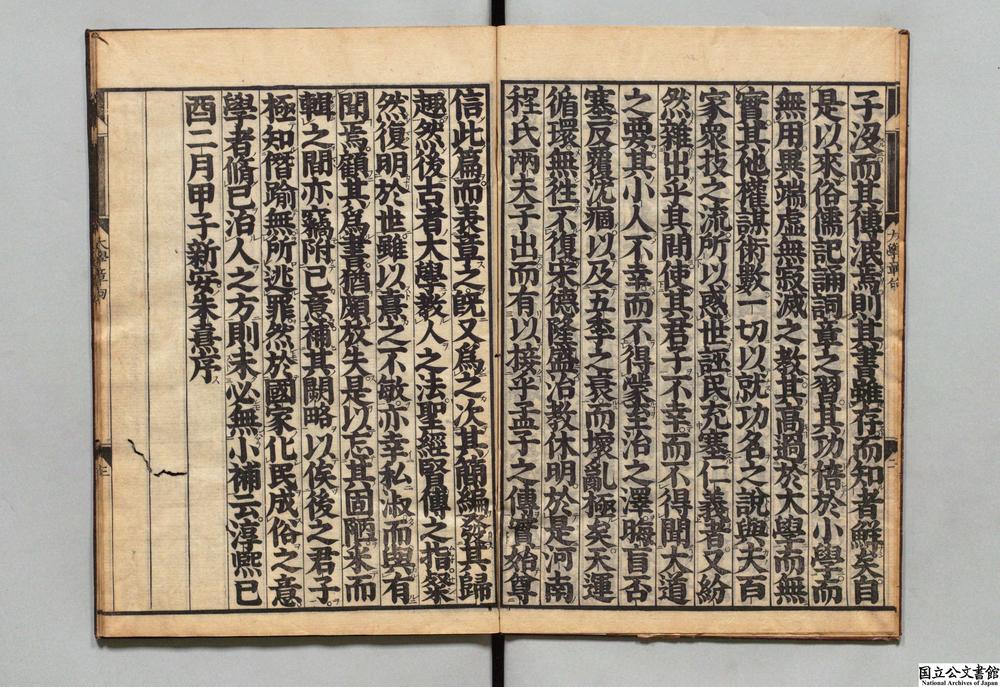 子沒而其傳泯焉則其書雖存而知者鮮矣自
是以來俗儒記誦詞章之習其功倍於小學而
無用異端虛無寂滅之教其高過於大學而無
實其他權謀術數一切以就功名之說與夫百
家衆技之流所以惑世誣民充塞仁義者又紛
然雜出乎其間使其君子不幸而不得聞大道
之要其小人不幸而不得蒙至治之澤晦盲否
塞反覆沈痼以及五季之衰而壞亂極矣天運
循環無往不復宋德隆盛治教休明於是河南
程氏兩夫子出而有以接乎孟子之傳實始尊
信此篇而表章之旣又爲之次其簡編發其歸
趣然後古者大學教人之法聖經賢傳之指粲
然復明於世雖以熹之不敏亦幸私淑而與有
聞焉顧其爲書猶頗放失是以忘其固陋釆而
輯之間亦竊附已意補其闕略以俟後之君子
極知僭踰無所逃罪然於國家化民成俗之意
學者脩已治人之方則未必無小補云淳熙已
酉二月甲子新安朱熹序
大學章句
二
大學章句
三
国立公文書館
National Archives of Japan